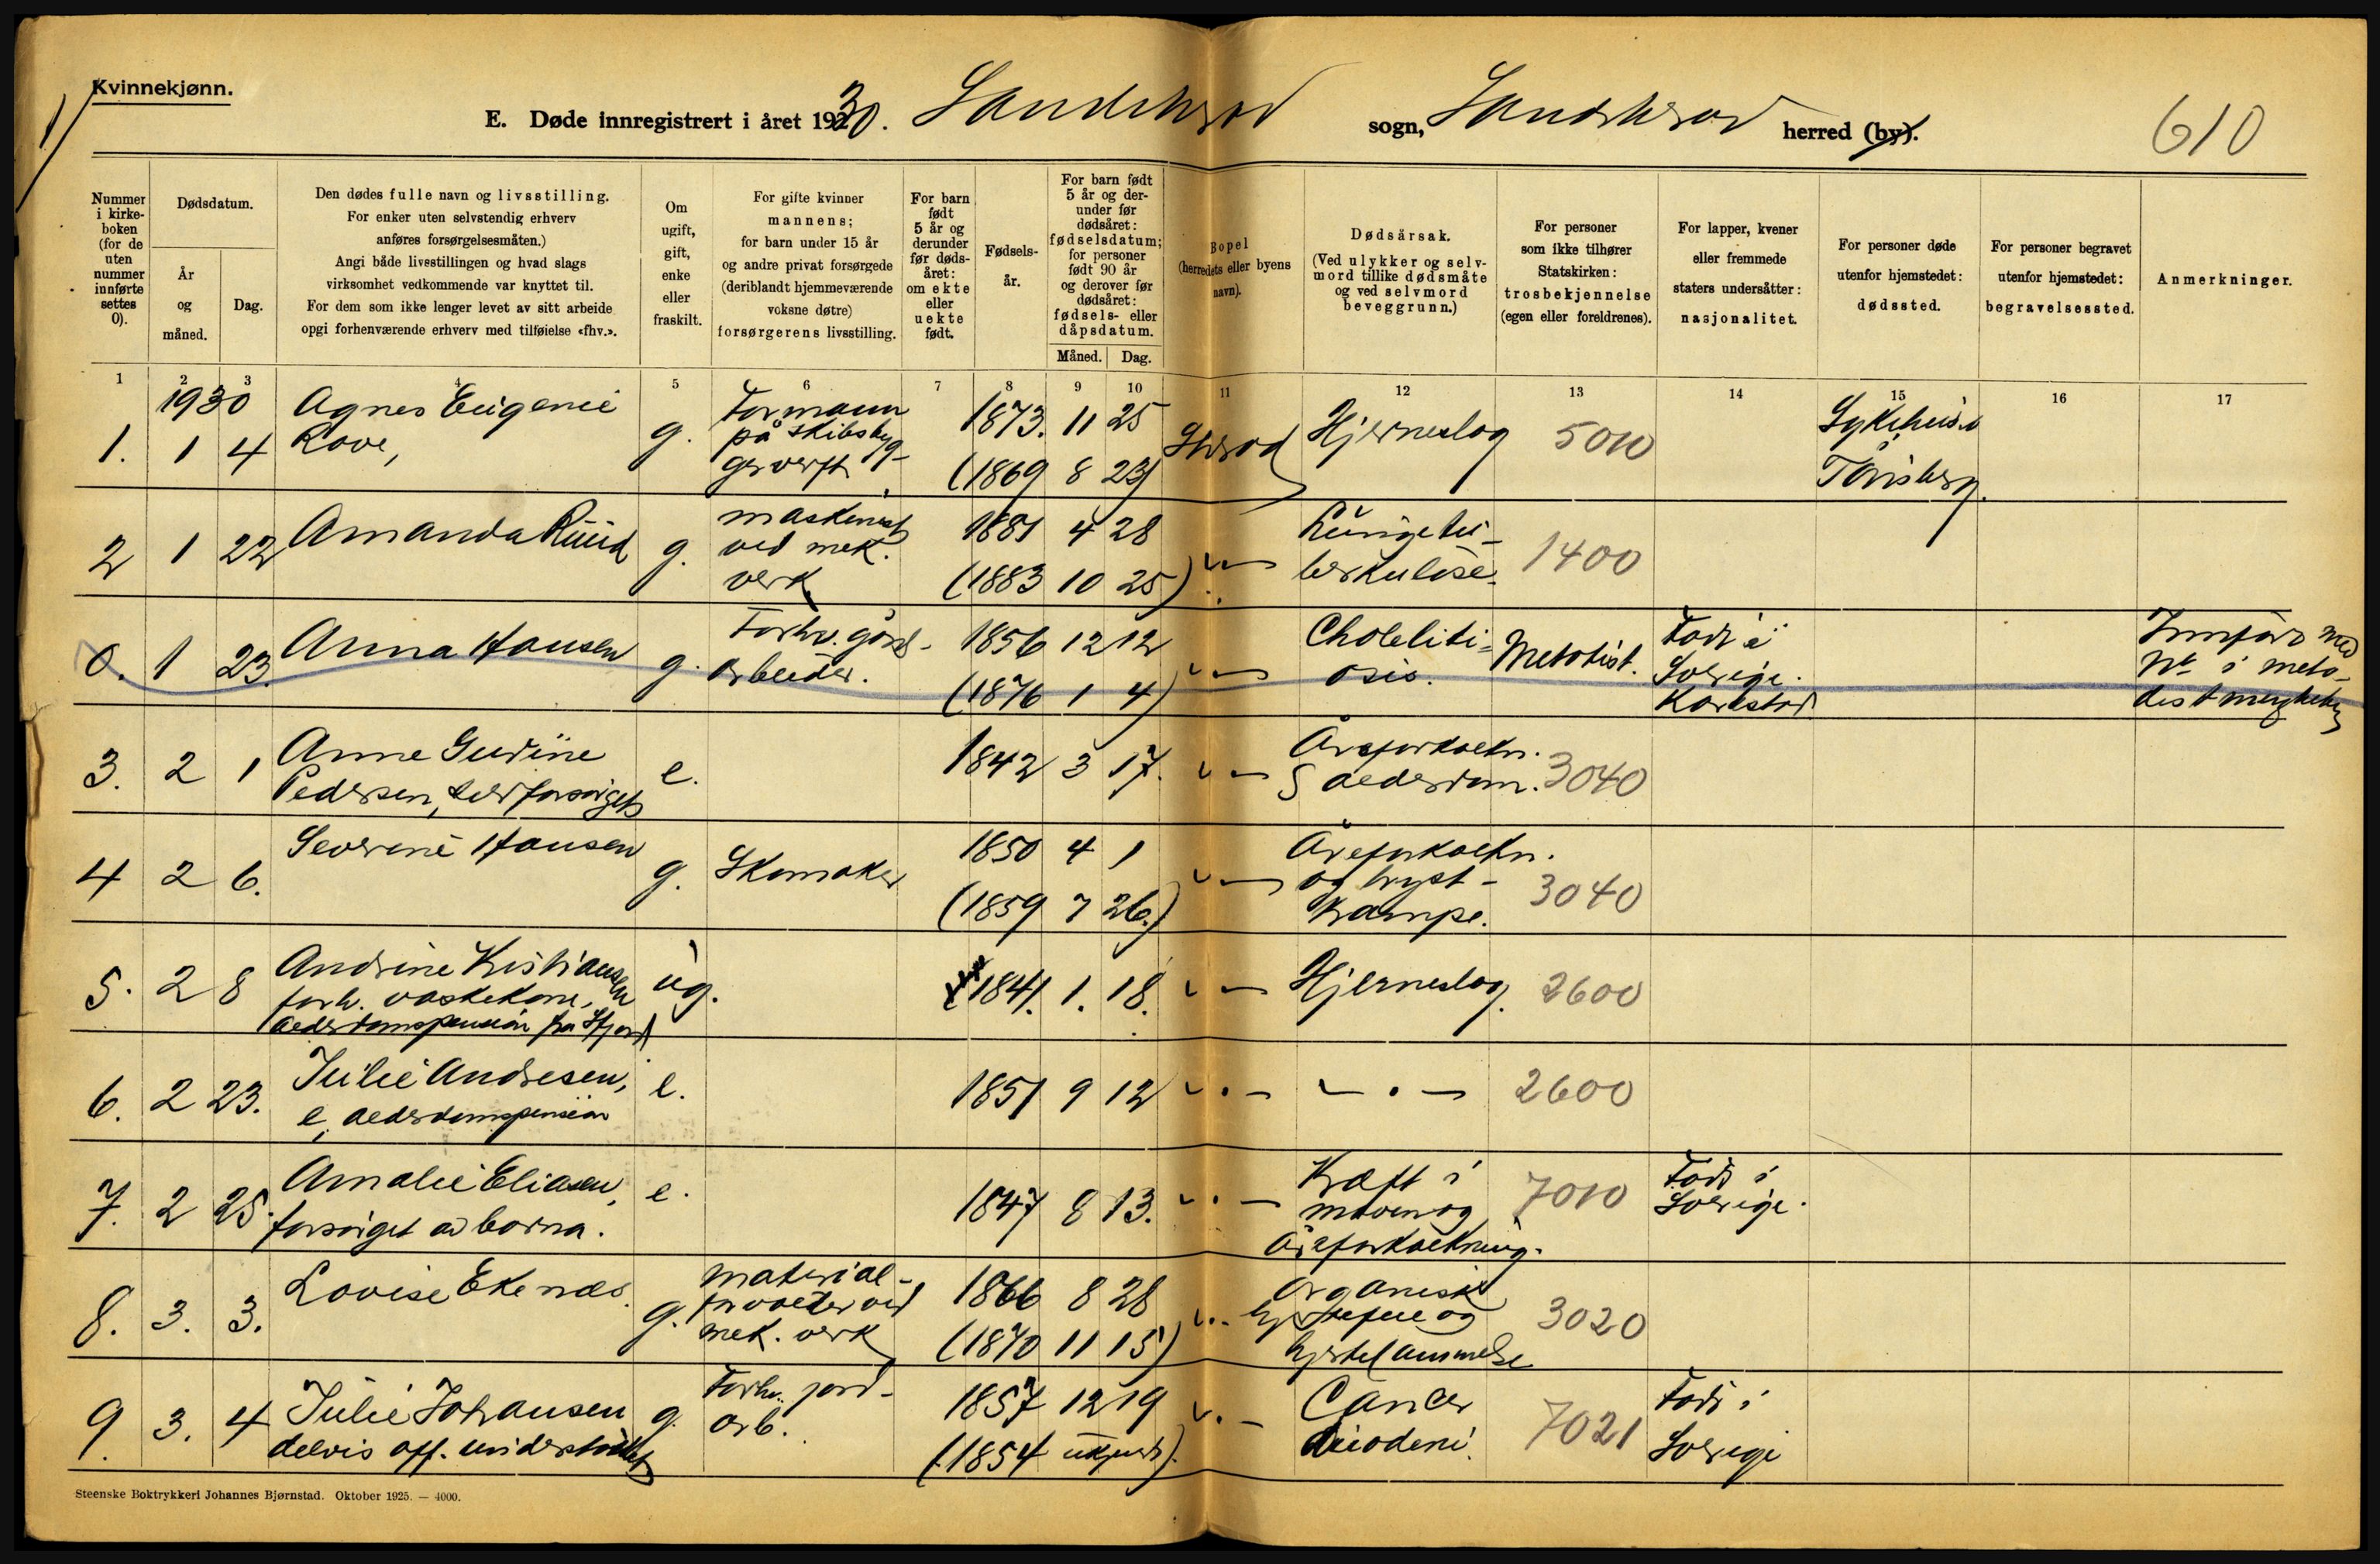 Kvinnekjønn.
E. Døde innregistrert i året 1930. Sandeherad sogn, Sandeherad herred (by).
610
Nummer i kirkeboken (for de uten nummer innførte settes 0).
Dødsdatum.
År og måned.
Dag.
Den dødes fulle navn og livsstilling.
For enker uten selvstendig erhverv
anføres forsørgelsesmåten.)
Angi både livsstillingen og hvad slags
virksomhet vedkommende var knyttet til.
For dem som ikke lenger levet av sitt arbeide
opgi forhenværende erhverv med tilføielse «fhv.».
Om ugift, gift, enke eller fraskilt.
For gifte kvinner
mannens;
for barn under 15 år
og andre privat forsørgede
(deriblandt hjemmeværende
voksne døtre)
forsørgerens livsstilling.
For barn født 5 år og derunder før dødsåret: om ekte eller uekte født.
Fødselsår.
For barn født 5 år og derunder før dødsåret: fødselsdatum; for personer født 90 år og derover før dødsåret: fødsels- eller dåpsdatum.
Måned. Dag.
Bopel
(herredets eller byens
navn).
Dødsårsak.
(Ved ulykker og selv-
mord tillike dødsmåte
og ved selvmord
beveggrunn.)
For personer
som ikke tilhører
Statskirken:
trosbekjennelse
(egen eller foreldrenes).
For lapper, kvener
eller fremmede
staters undersåtter:
nasjonalitet.
For personer døde
utenfor hjemstedet:
dødssted.
For personer begravet
utenfor hjemstedet:
begravelsessted.
Anmerkninger.
1 2 3 4 5 6 7 8 9 10 11 12 13 14 15 16 17
1930
1. 1 4 Agnes Eugenie
Rove,
g.
Formann
på skibsbyg-
gerverft
1873. 11 25
(1869 8 23)
Hjerneslag
5010
Sykehuset
Tønsberg.
2 1 22 Amanda Ruud
g.
maskinist
ved mek.
verk
1881 4 28
(1883 10 25)
Lungetu-
berkulose.
1400
0. 1 23. Anna Hansen
g.
Forhv. gårds-
arbeider.
1856 12 12
(1876 1 4)
Choleliti-
osis.
Metodist.
Født i
Sverige.
Karlstad
Innført med
Nr i meto-
distmenigheten
3. 2 1 Anne Gurine
Pedersen, selvforsørget
e.
1842 3 17.
Åreforkalkn.
& alderdom.
3040
4 2 6. Severine Hansen
g. Skomaker
1850 4 1
(1859 7 26.)
Åreforkalkn.
og bryst-
krampe.
3040
5. 2 8 Andrine Kristiansen
forh. vaskekone,
alderdomspension fra Sfjord
ug.
1841. 1. 18.
Hjerneslag.
2600
6. 2 23. Julie Andresen,
e. alderdomspension
e.
1851 9 12
2600
7. 2 25. Amalie Eliasen,
forsørget av barna.
e.
1847 8 13.
Kræft i
maven og
åreforkalkning.
7010
Født i
Sverige.
8. 3. 3. Lovise Ekenæs.
g.
material-
forvalter ved
mek. verk
1866 8 28
(1870 11 15)
Organisk
hjertefeil og
hjertelammelse
3020
9. 3. 4 Julie Johansen
delvis off. understøttet
g.
Forhv. jord-
arb.
1857 12 19
(1854 ukjent).
Cancer
duodeni.
7021
Født i
Sverige
Steenske Boktrykkeri Johannes Bjørnstad. Oktober 1925. — 4000.